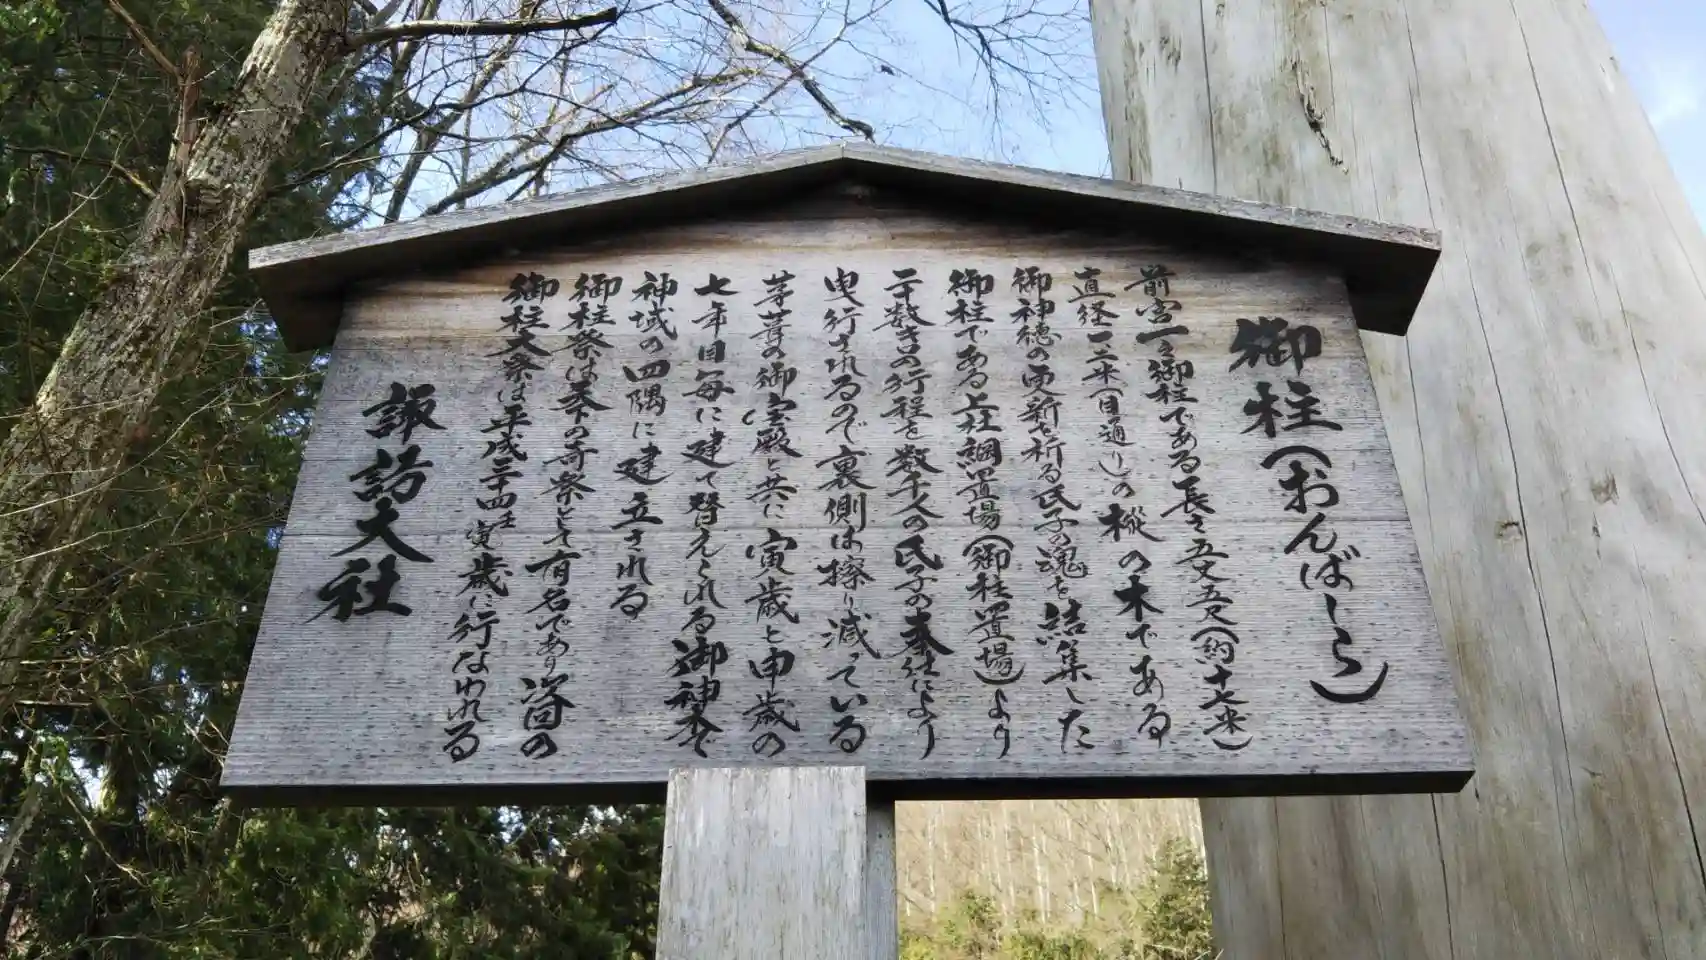 御柱(おんばしら)
前宮一之御柱である長さ五丈五尺(約十七米)
直径一・二米(目通り)の樅の木である
御神徳の更新を祈る氏子の魂を結集した
御柱である上社綱置場(御柱置場)より
二十数キロの行程を数千人の氏子の奉仕により
曳行されるので裏側は擦り減っている
茅葺の御宝殿と共に寅歳と申歳の
七年目毎に建て替えられる御神木で
神域の四隅に建立される
御柱祭は天下の奇祭として有名であり次回の
御柱大祭は平成三十四年壬寅歳に行なわれる
諏訪大社